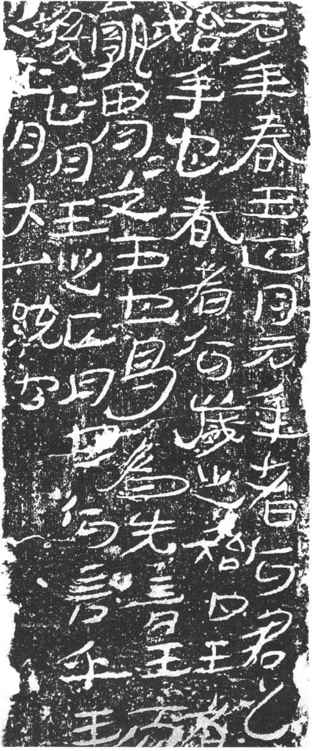 元年春王正月元年者何君之
始年也春者何歲之始也王者
孰胃文王也曷為先言王而
後正月王之正月也何言乎王
正月大一統也